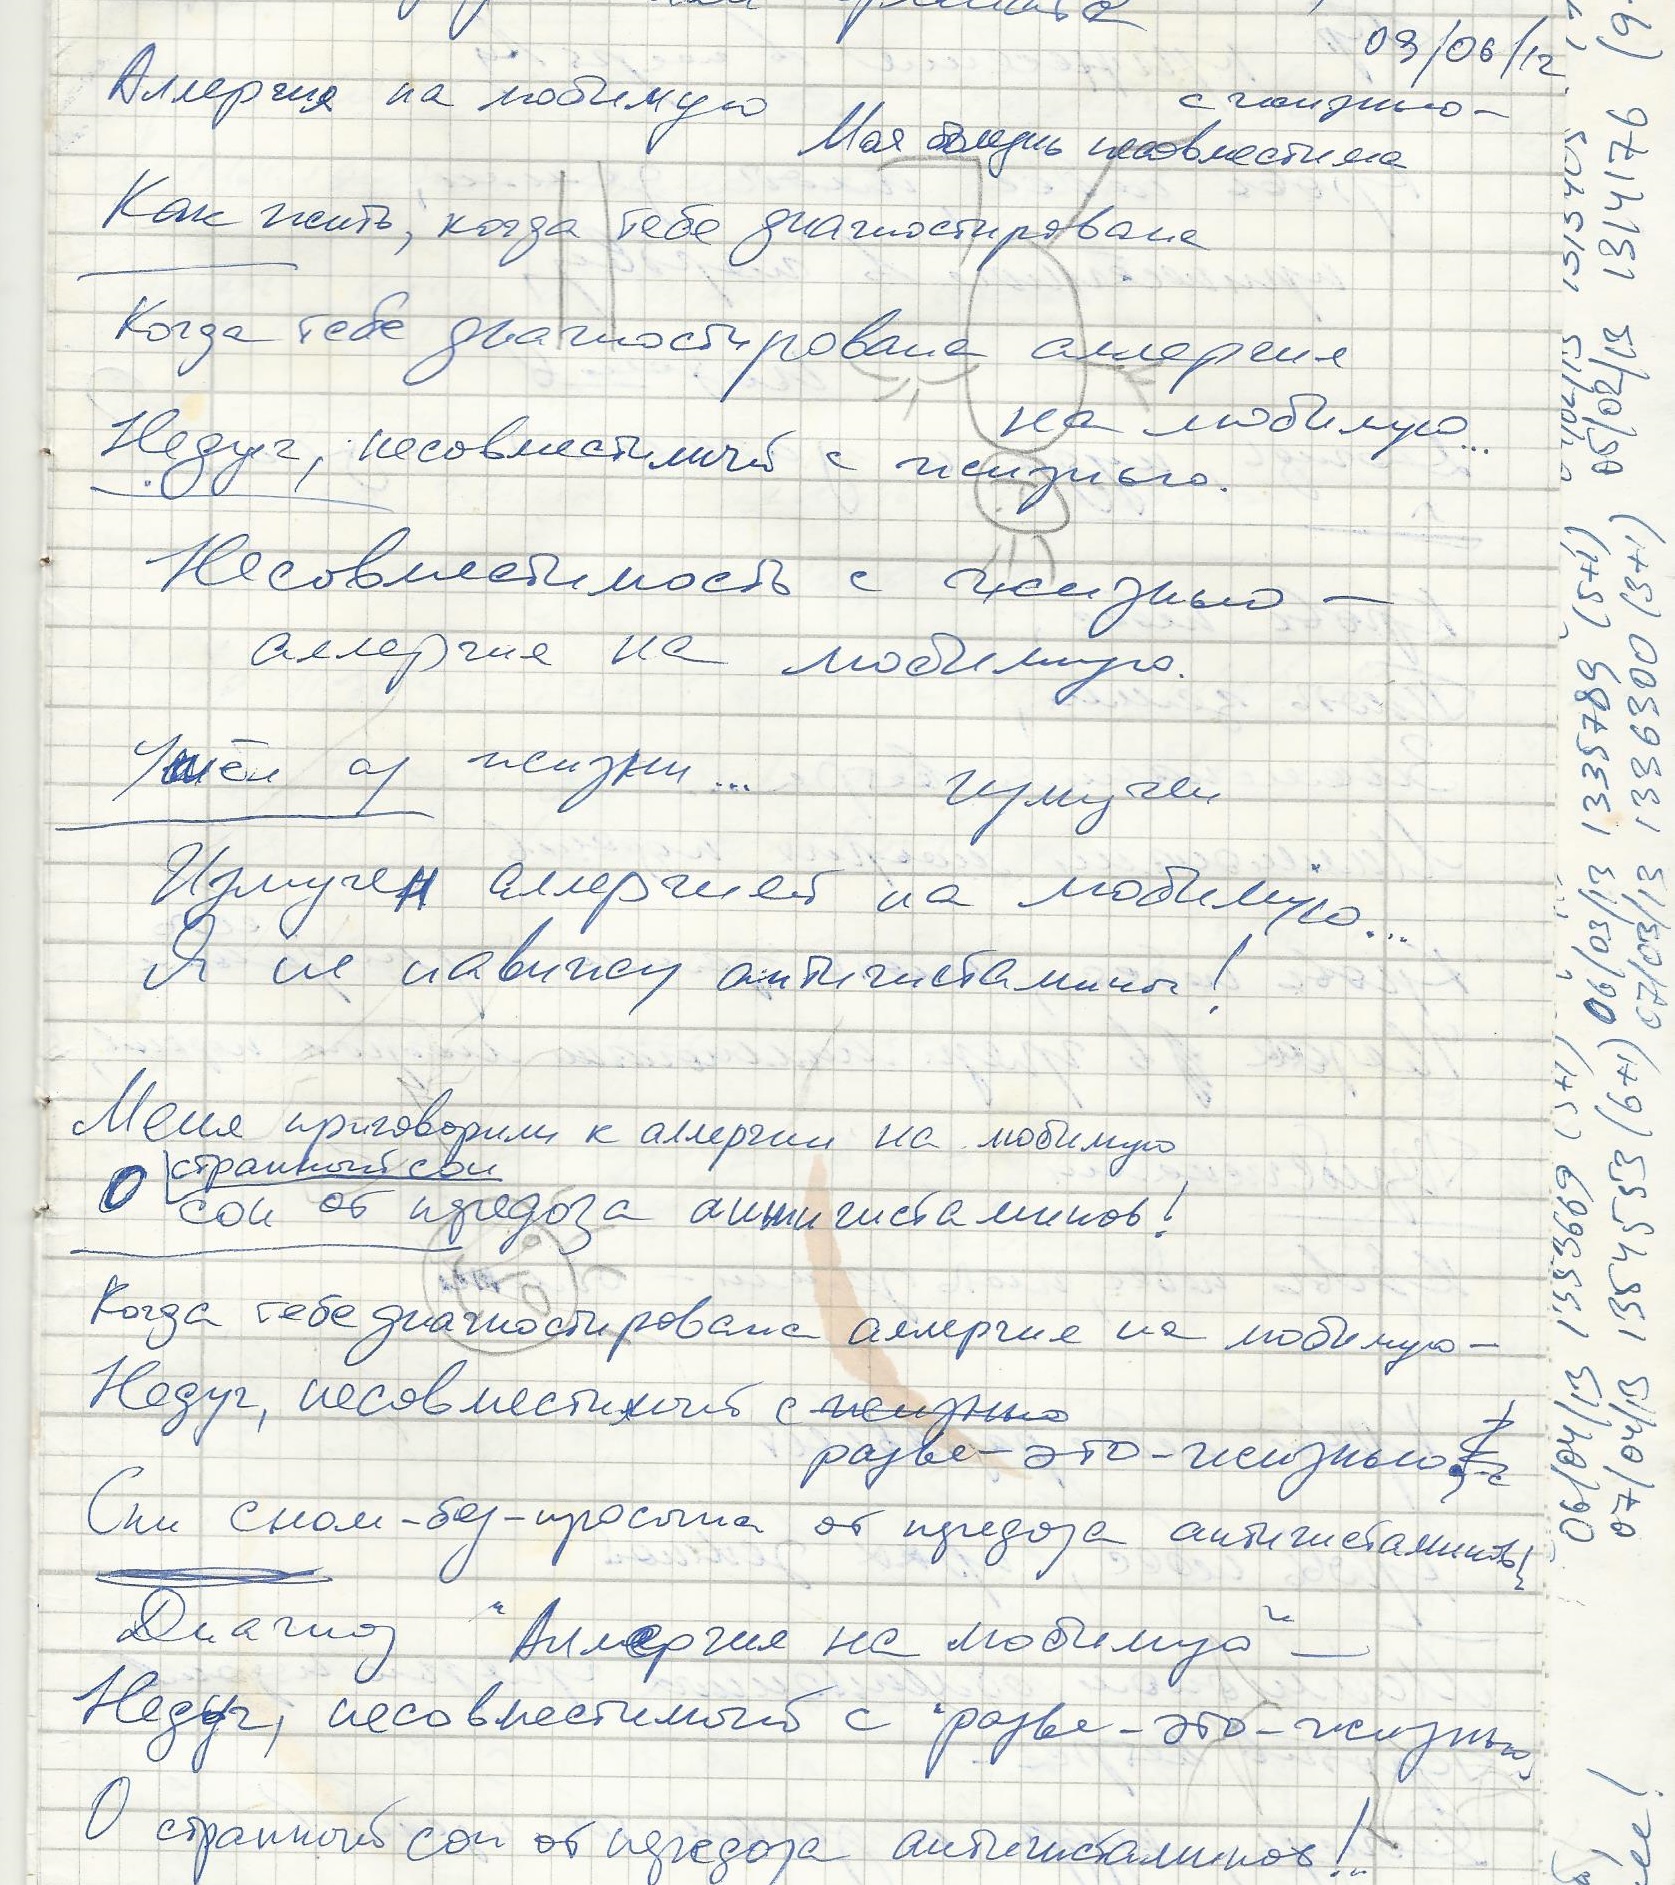 03/06/12
Аллергия на любимую
с жизнью –
Моя болезнь несовместима
Как жить, когда тебе диагностирована
Когда тебе диагностирована аллергия
на любимую...
Недуг, несовместимый с жизнью.
Несовместимость с жизнью –
аллергия на любимую.
Ушёл из жизни... измучен
Измучен аллергией на любимую...
Я не навижу антигистамины!
Меня приговорили к аллергии на любимую
странный сон
О сон от передоза антигистаминов!
Когда тебе диагностирована аллергия на любимую –
Недуг, несовместимый с жизнью
разве-это-жизнью
Спи сном-без-просыпа от передоза антигистаминов
Диагноз "Аллергия на любимую" –
Недуг, несовместимый с "разве-это-жизнью"
О странный сон от передоза антигистаминов!..
06/04/13 1353609 (5+1) 06/03/13 1335789 (5+1)
07/04/13 1354553 (6+1) 07/03/13 1339300 (3+1)
05/02/13 1314176